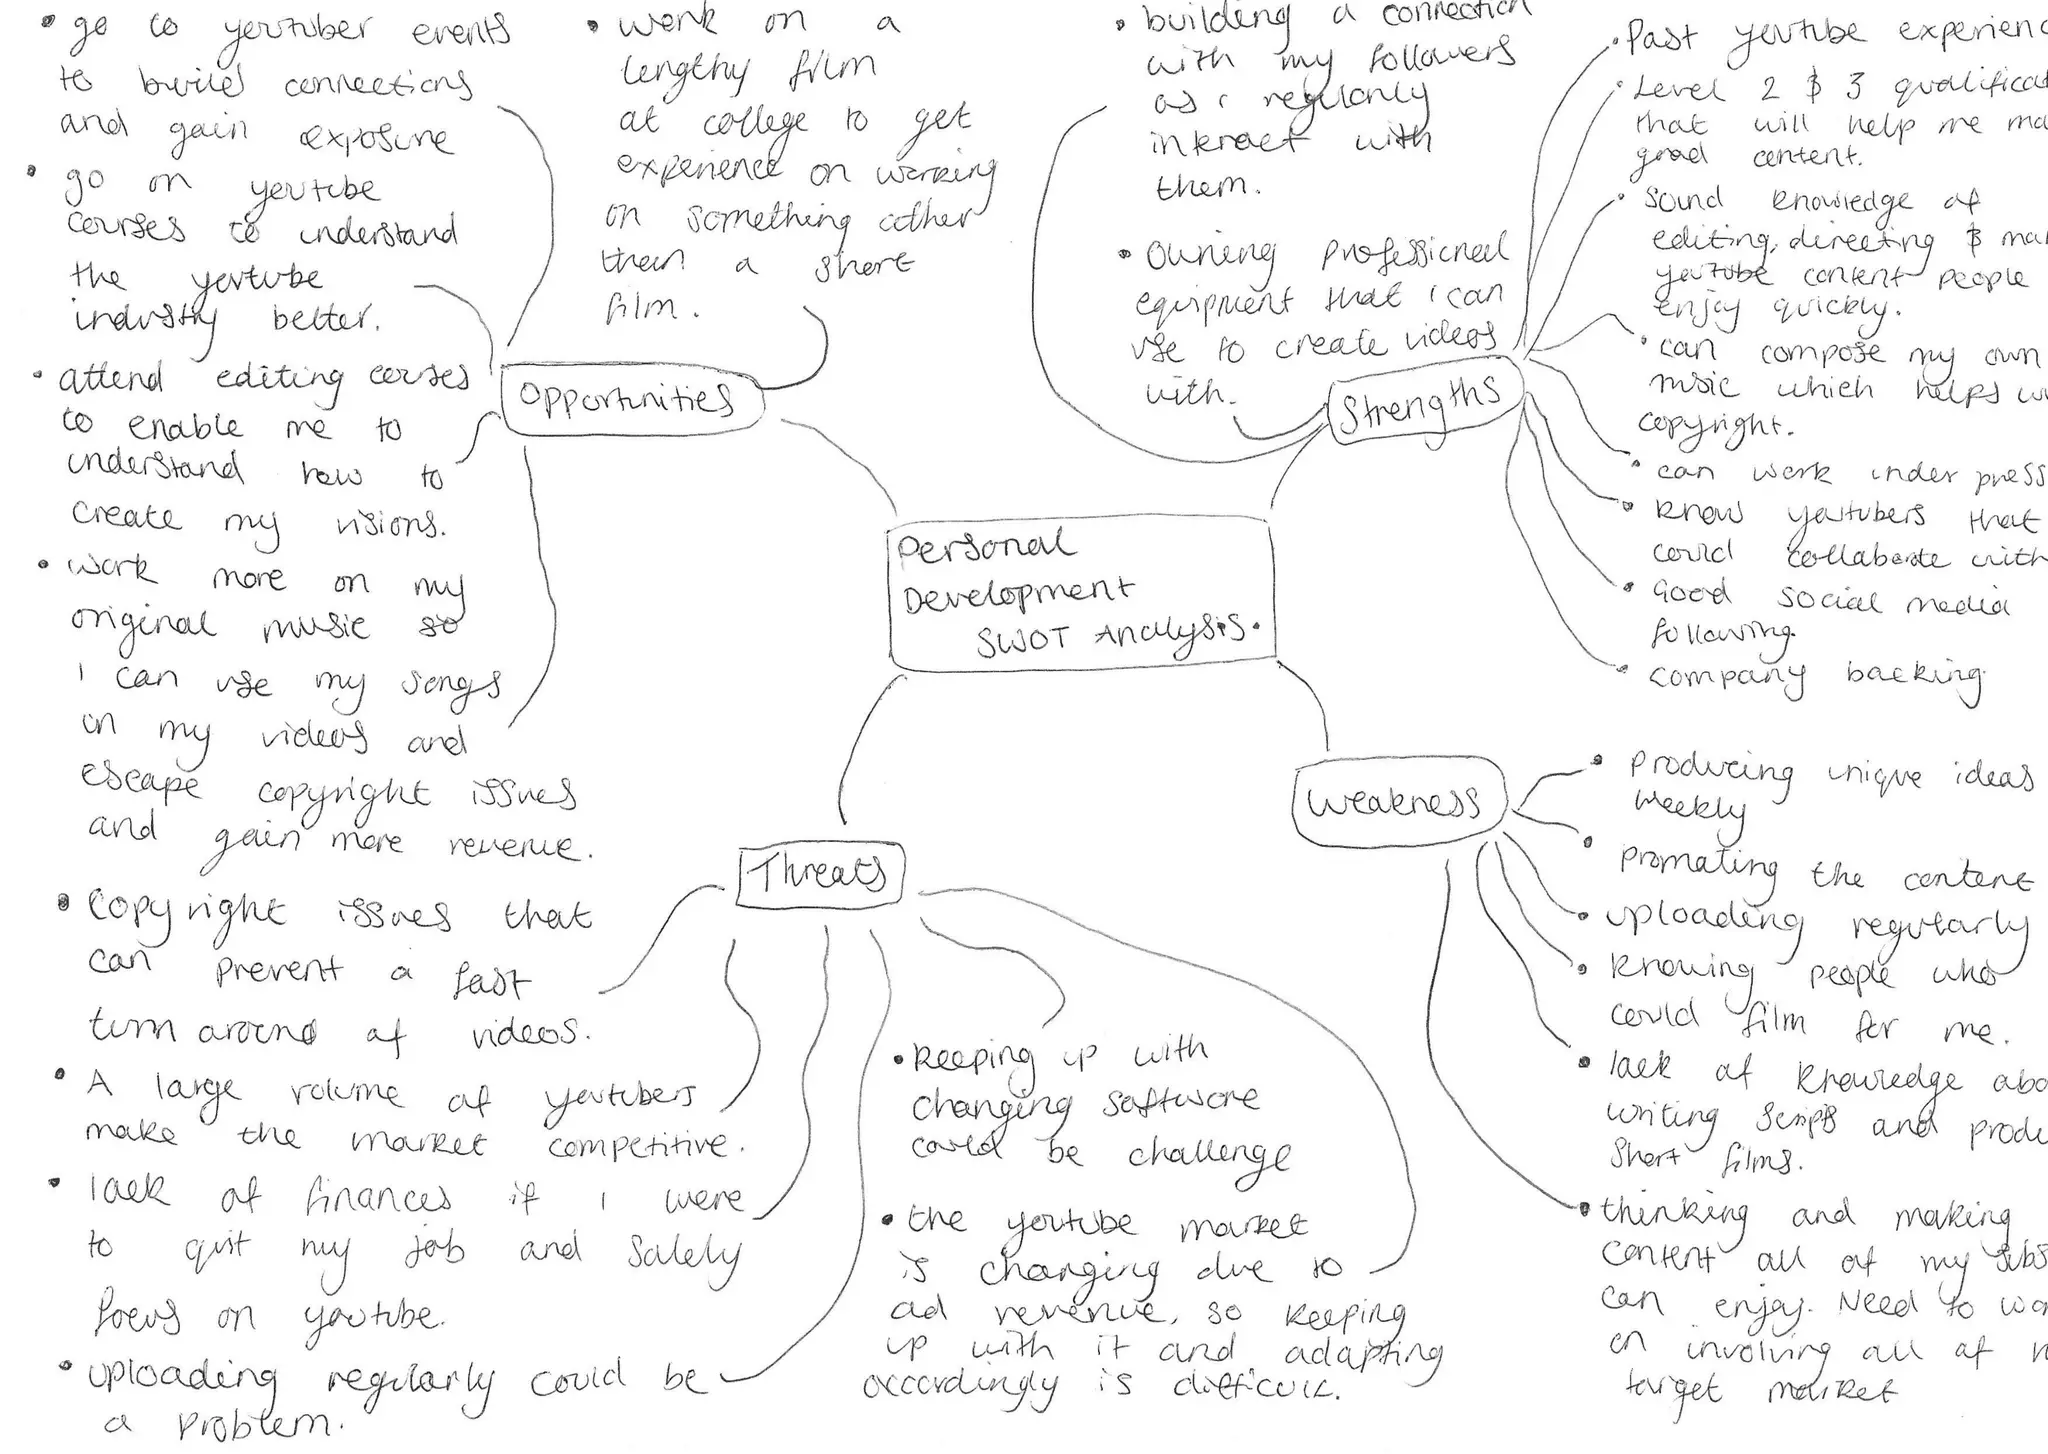 • go to youtuber events
to build connections
and gain exposure
• go on youtube
courses to understand
the youtube
industry better.
• attend editing courses
to enable me to
understand how to
create my visions.
• work more on my
original music so
I can use my songs
in my videos and
escape copyright issues
and gain more revenue.
• work on a
lengthy film
at college to get
experience on working
on something other
then a short
film.
Opportunities
• building a connection
with my followers
as i regularly
interact with
them.
• Owning professional
equipment that i can
use to create videos
with.
Strengths
• Past youtube experienc
• Level 2 & 3 qualificat
that will help me ma
good content.
• Sound knowledge of
editing, directing & ma
youtube content people
enjoy quickly.
• can compose my own
music which helps w
copyright.
• can work under press
• know youtubers that
could collaborate with
• Good social media
following.
• company backing
Personal
Development
SWOT Analysis.
Weakness
• Producing unique ideas
weekly
• promoting the content
• uploading regularly
• knowing people who
could film for me.
• lack of knowledge abo
writing scripts and produ
short films.
• thinking and making
content all of my subs
can enjoy. Need to wo
on involving all of
target market
Threats
• Copyright issues that
can prevent a fast
turn around of videos.
• A large volume of youtubers
make the market competitive.
• lack of finances if I were
to quit my job and solely
focus on youtube.
• uploading regularly could be
a problem.
• keeping up with
changing software
could be challenge
• the youtube market
is changing due to
ad revenue, so keeping
up with it and adapting
accordingly is difficult.